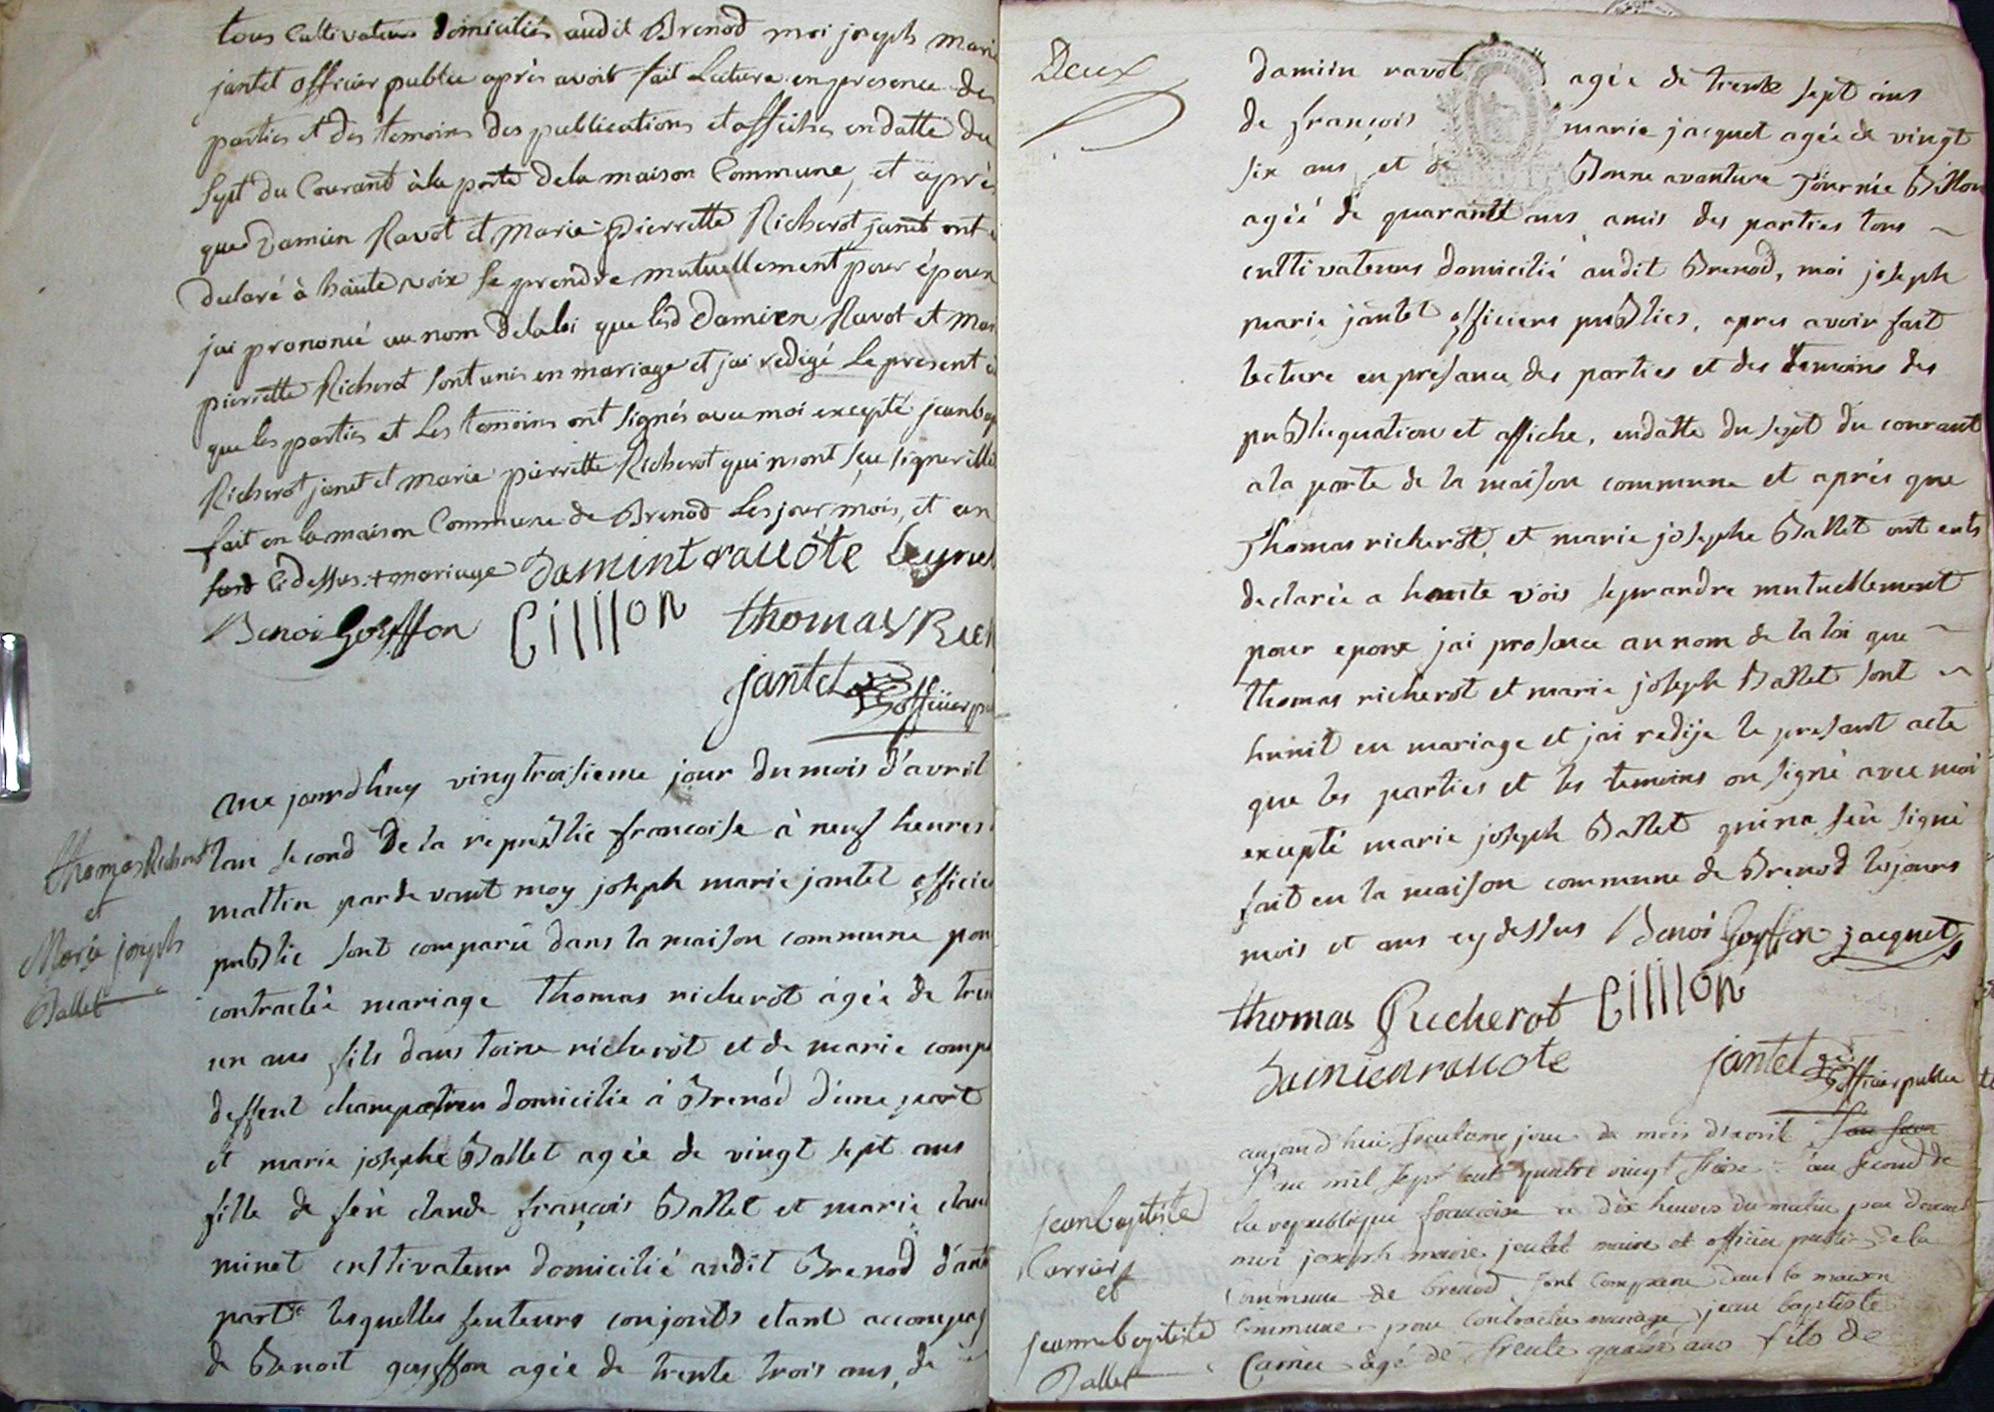 tous Cultivateurs domiciliés audit Brenod moi joseph mari
jantet officier public après avoir fait Lecture en presence de
parties et des temoins des publications et affiches en datte du
sept du Courant à la porte de la maison Commune, et après
que Damien Ravot et Marie pierrette Richerot janet ont
declaré à haute voix se prendre mutuellement pour époux
jai prononcé au nom de la loi que lesd Damien Ravot et Mar
pierrette Richerot sont unis en mariage et jai redigé Le present
que les parties et Les temoins ont signés avec moi excepté jean bap
Richerot janet et marie pierrette Richerot qui nont sçu signer
fait en la maison Commune de Brenod Les jour, mois, et an
Cidessus + mariage Damint ravote
Benoi Goyffon Cillion thomas Rich
jantet officier pu
aue jourdhuy vingtroisieme jour du mois d'avril
lan second de la republic francoise à neuf heures
mattin parde vant moy joseph marie jantet officie
public sont comparü dans la maison commune pour
thomas Richerot
et
Marie joseph
Ballet
contractée mariage thomas richerot agée de tren
un ans fils dans toine richerot et de marie comp
deffent champetren domicilie à Brenod d'une part
et marie josephe Ballet agée de vingt sept ans
fille de feü claude françois Ballet et marie clau
minet cultivateur domicilié audit Brenod d'aut
part lesquelles feuteurs conjoints etant accompag
de Benoit goyffon agée de trente trois ans, de
Deux
damien ravot agée de trente sept ans
de françois marie jacquet agée de vingt
six ans et de Bonne avanture
agéé de quarante ans amis des parties tous
cultivateurs domicilié audit Brenod, moi joseph
marie jantet officiers publics, apres avoir fait
lecture en presance des parties et des temoins des
publiquation et affiche, endatte du sept du courant
a la porte de la maison commune et aprés que
Thomas richerot, et marie josephe Ballet ont ents
declarée a haute vois seprandre mutuellement
pour epoux jai pronsonce au nom de la loi que
thomas richerot et marie joseph Ballet sont
hunit en mariage et jai redije le presant acte
que les parties et les temoins on signé avec moi
excepté marie joseph Ballet quina seü signé
fait en la maison commune de Brenod les jours
mois et ans cy dessus Benoi Goyffon jacquet
thomas Richerot Cillion
Damien ravote jantet officier public
aujourd'hui trentieme jour du mois d'avril
l'an mil sept cent quatre vingt treize l'an second de
la republique francoise a dix heures du matin par devant
moi joseph marie jantet maire et officier public de la
Commune de brenod sont comparu dans la maison
Commune pour contracter mariage jean baptiste
Carrier âgé de trente quatre ans fils de
jean baptiste
Carrier
et
jeanne baptiste
Ballet